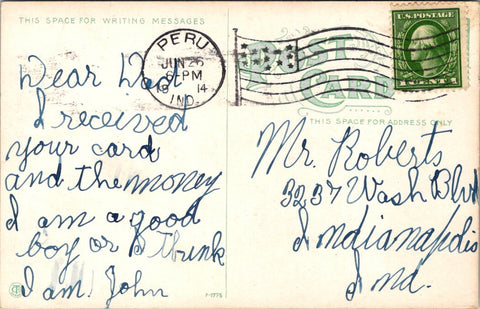 THIS SPACE FOR WRITING MESSAGES
Dear Dad
I received
your card
and the money
I am a good
boy or I think
I am. John
PERU
JUN 26
6-PM
19 14
IND.
U.S. POSTAGE
POST
CARD
THIS SPACE FOR ADDRESS ONLY
Mr. Roberts
3237 Wash Blvd
Indianapolis
Ind.